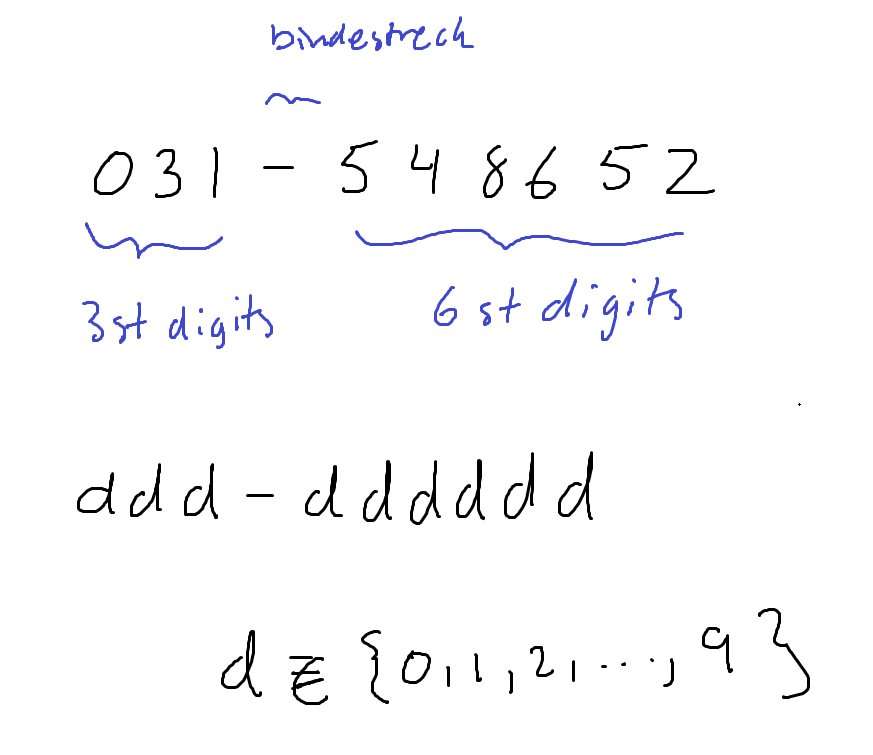 bindestreck
031 - 548652
3st digits 6 st digits
ddd - dddddd
d ∈ {0,1,2,...,9}